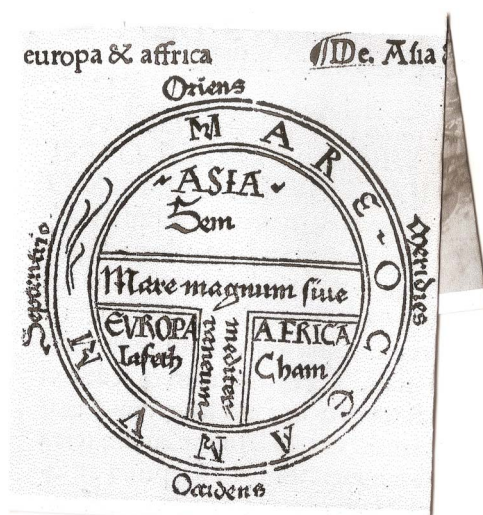 europa & affrica
De. Asia
Oriens
MARE OCCEANVM
ASIA
Sem
Septentrio
Meridies
Mare magnum siue
mediter
raneum
EVROPA
Iafeth
AFRICA
Cham
Occidens